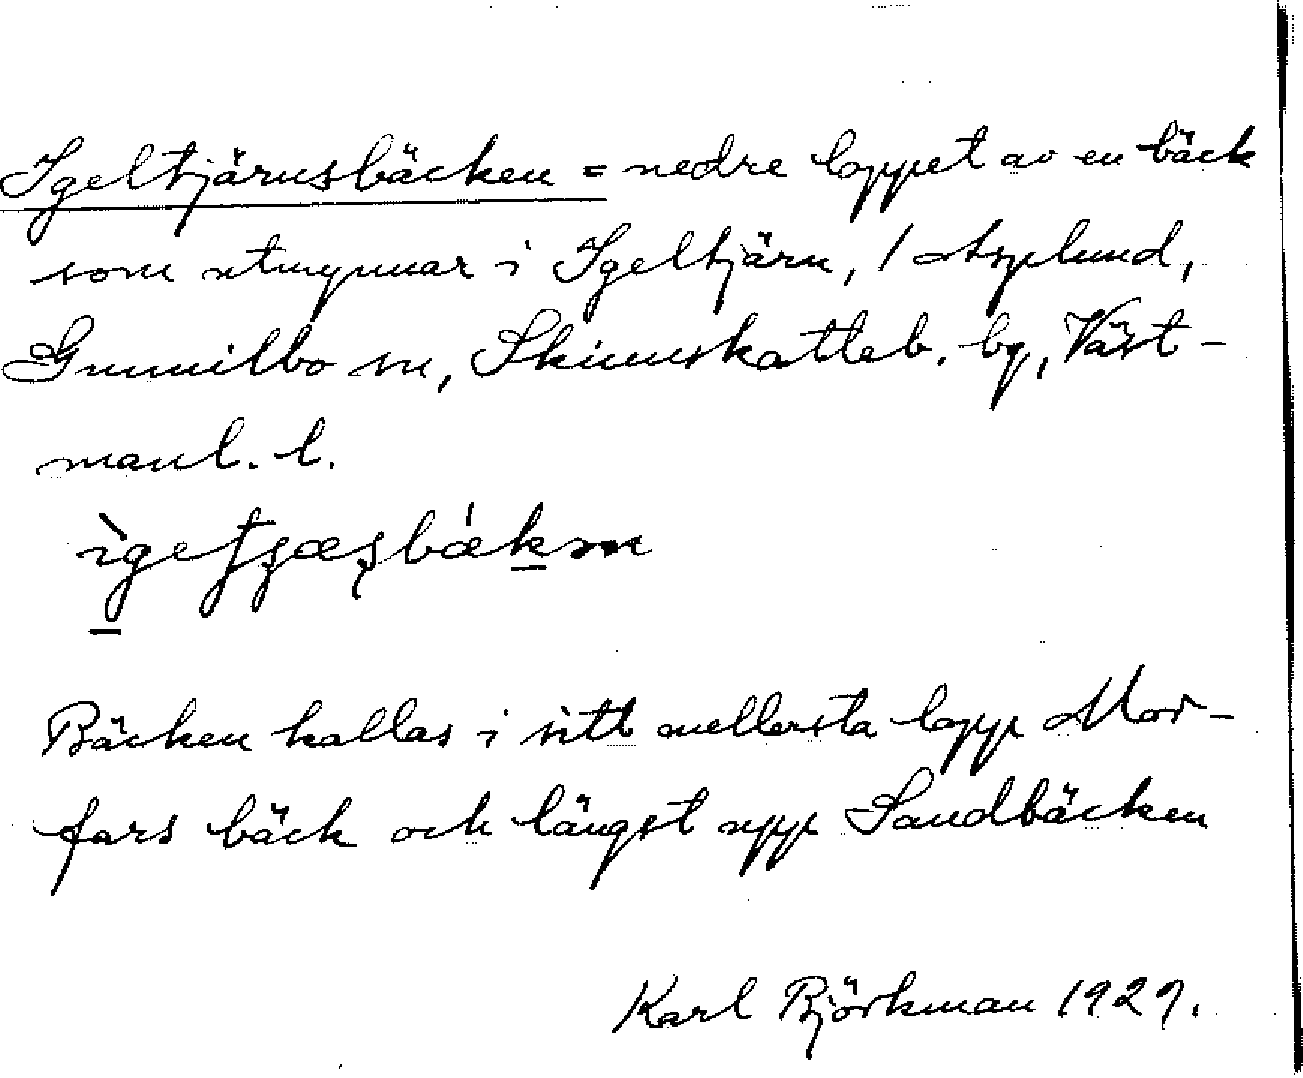 Igeltjärnsbäcken = nedre loppet av en bäck
som utmynnar i Igeltjärn, 1 Asplund,
Gunnilbo sn, Skinnskatteb. bg, Väst-
manl. l.
Bäcken kallas i sitt mellersta lopp Mor-
fars bäck och längst upp Sandbäcken
Karl Björkman 1927.